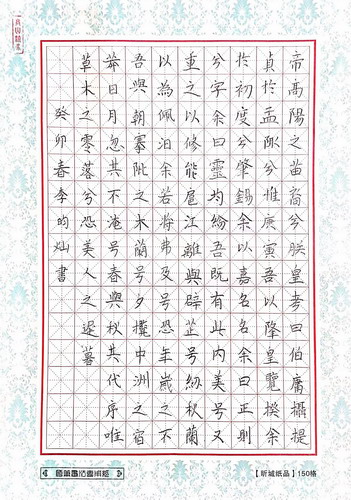 帝高陽之苗裔兮朕皇考曰伯庸攝提
貞於孟陬兮惟庚寅吾以降皇覽揆余
於初度兮肇錫余以嘉名名余曰正則
兮字余曰靈均紛吾既有此內美兮又
重之以修能扈江離與辟芷兮紉秋蘭
以為佩汩余若將弗及兮恐年歲之不
吾與朝搴阰之木蘭兮夕攬中洲之宿
莽日月忽其不淹兮春與秋其代序惟
草木之零落兮恐美人之遲暮
癸卯春李昀灿書
【昕城纸品】150格